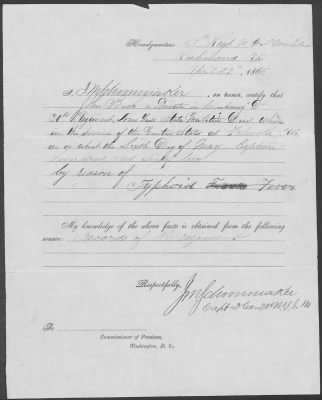 Headquarters 20th Regt N.Y.S. Militia
Richmond Va
April 23d 1865
I, J M Schoonmaker, on honor, certify that
John Bush a Private in Company D
20th Regiment New York State Militia Died while
in the service of the United States at Va
on or about the Sixth Day of May Eighteen
hundred and Sixty
by reason of
Typhoid Fever Fever
My knowledge of the above facts is obtained from the following
source: Records of Company D
Respectfully,
J M Schoonmaker
Capt D Co. 20 N.Y.S.M
To
Commissioner of Pensions,
Washington, D. C.